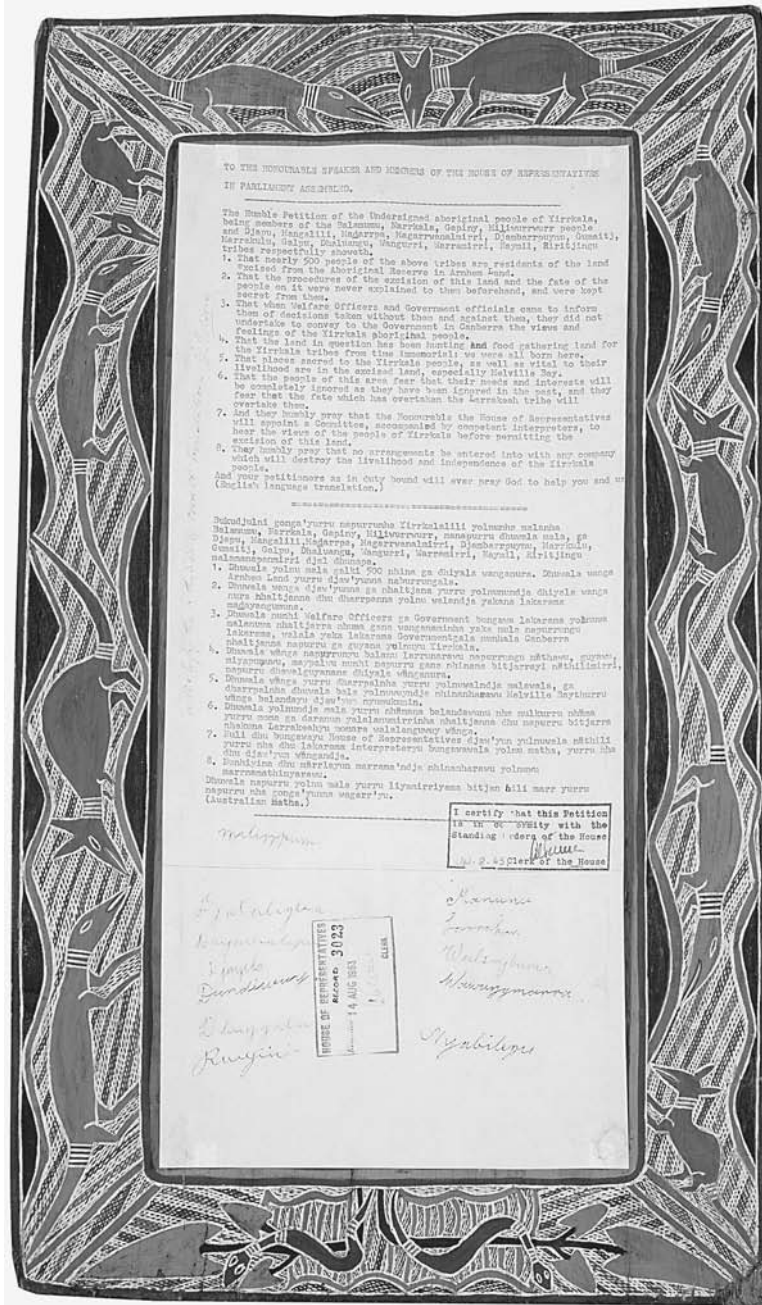 TO THE HONOURABLE SPEAKER AND MEMBERS OF THE HOUSE OF REPRESENTATIVES
IN PARLIAMENT ASSEMBLED.
The Humble Petition of the Undersigned aboriginal people of Yirrkala,
being members of the Balamumu, Narrkala, Gapiny, Miliwurrwurr people
and Djapu, Mangalili, Madarrpa, Magarrwanalmirri, Djambarrpuynu, Gumaitj,
Marrakulu, Galpu, Dhaluangu, Wangurri, Warramirri, Naymil, Riritjingu
tribes respectfully showeth.
1. That nearly 500 people of the above tribes are residents of the land
excised from the Aboriginal Reserve in Arnhem Land.
2. That the procedures of the excision of this land and the fate of the
people on it were never explained to them beforehand, and were kept
secret from them.
3. That when Welfare Officers and Government officials came to inform
them of decisions taken without them and against them, they did not
undertake to convey to the Government in Canberra the views and
feelings of the Yirrkala aboriginal people.
4. That the land in question has been hunting and food gathering land for
the Yirrkala tribes from time immemorial: we were all born here.
5. That places sacred to the Yirrkala people, as well as vital to their
livelihood are in the excised land, especially Melville Bay.
6. That the people of this area fear that their needs and interests will
be completely ignored as they have been ignored in the past, and they
fear that the fate which has overtaken the Larrakeah tribe will
overtake them.
7. And they humbly pray that the Honourable the House of Representatives
will appoint a Committee, accompanied by competent interpreters, to
hear the views of the people of Yirrkala before permitting the
excision of this land.
8. They humbly pray that no arrangements be entered into with any company
which will destroy the livelihood and independence of the Yirrkala
people.
And your petitioners as in duty bound will ever pray God to help you and us
(English language translation.)
Bukudjulni gonga'yurru napurrunha Yirrkalalili yolnunha malanha
Balamumu, Narrkala, Gapiny, Miliwurrwurr, nanapurru dhuwala mala, ga
Djapu, Mangalili, Madarrpa, Magarrwanalmirri, Djambarrpuynu, Marrkulu,
Gumaitj, Galpu, Dhaluangu, Wangurri, Warramirri, Naymil, Riritjingu
malamanapanmirri djal dhunapa.
1. Dhuwala yolnu mala galki 500 nhina ga dhiyala wanganura. Dhuwala wanga
Arnhem Land yurru djaw'yunna naburrungala.
2. Dhuwala wanga djaw'yunna ga nhaltjana yurru yolnunundja dhiyala wanga
nura nhaltjanna dhu dharrpanna yolnu walandja yakana lakarama
madayangumuna.
3. Dhuwala nunhi Welfare Officers ga Government bungawa lakarama yolnuwa
malanuwa nhaltjarra nhuma gana wanganaminha yaka nula napurrungu
lakarama, walala yaka lakarama Governmentgala nunhala Canberra
nhaltjanna napurru ga guyana yolnuyu Yirrkala.
4. Dhuwala wänga napurrungyu balanu larrunarawu napurrungu näthawu, guyawu,
miyapunuwu, maypalwu nunhi napurru gana nhinana bitjarrayi näthilimirri,
napurru dhawalguyanana dhiyala wänganura.
5. Dhuwala wänga yurru dharrpalnha yurru yolnuwalndja malawala, ga
dharrpalnha dhuwala bala yolnuwuyndja nhinanharawu Melville Baythurru
wänga balandayu djaw'yun nyumukunin.
6. Dhuwala yolnundja mala yurru nhämana balandawunu nha mulkurru nhäma
yurru moma ga daranun yalalanumirrinha nhaltjanna dhu napurru bitjarra
nhakuna Larrakeahyu momara walalanguwuy wänga.
7. Nuli dhu bungawayu House of Representatives djaw'yun yolnuwala näthili
yurru nha dhu lakarama interpreteryu bungawawala yolnu matha, yurru nha
dhu djaw'yun wängandja.
8. Nunhiyina dhu märrlayun marrama'ndja nhinanharawu yolnuwu
marrnamathinyarawu.
Dhuwala napurru yolnu mala yurru liyamirriyama bitjan bili marr yurru
napurru nha gonga'yunna wagarr'yu.
(Australian Matha.)
I certify that this Petition
is in conformity with the
Standing Orders of the House
Clerk of the House
HOUSE OF REPRESENTATIVES
RECORD 3023
14 AUG 1963
CLERK
Dundiwuy
Wawunymarra
Nyabilingu